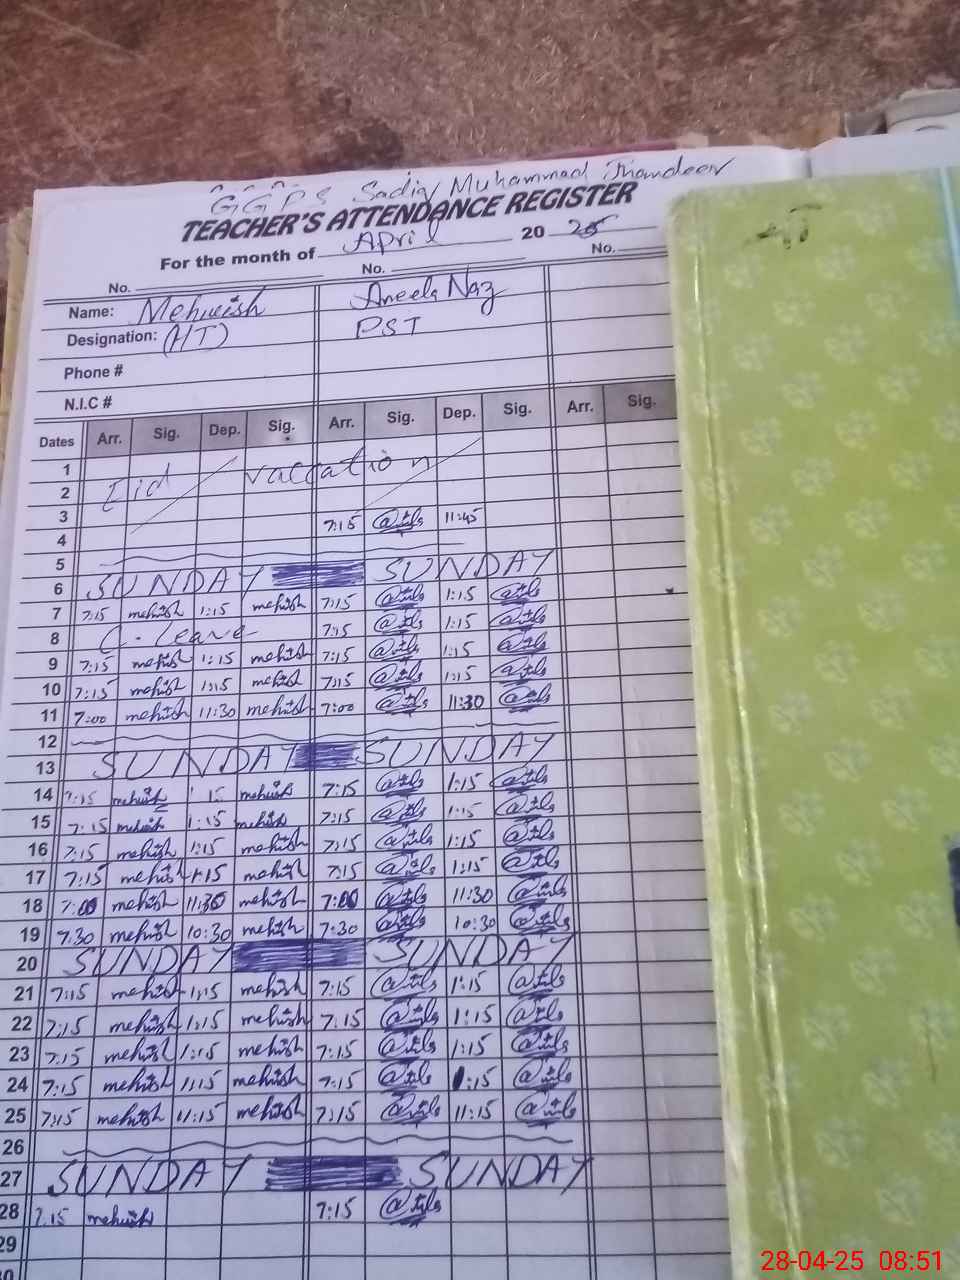 GGPS Sadiq Muhammad Jhandeer
TEACHER'S ATTENDANCE REGISTER
For the month of April 20 25
No. No. No.
Name: Mehwish Aneela Naz
Designation: (HT) PST
Phone #
N.I.C #
Dates Arr. Sig. Dep. Sig. Arr. Sig. Dep. Sig. Arr. Sig.
1
2 Eid vaccation
3 7:15 11:45
4
5
6 SUNDAY SUNDAY
7 7:15 mehwish 1:15 mehwish 7:15 1:15
8 C. Leave 7:15 1:15
9 7:15 mehwish 1:15 mehwish 7:15 1:15
10 7:15 mehwish 1:15 mehwish 7:15 1:15
11 7:00 mehwish 11:30 mehwish 7:00 11:30
12
13 SUNDAY SUNDAY
14 7:15 mehwish 1 15 mehwish 7:15 1:15
15 7:15 mehwish 1:15 mehwish 7:15 1:15
16 7:15 mehwish 1:15 mehwish 7:15 1:15
17 7:15 mehwish 1:15 mehwish 7:15 1:15
18 7:00 mehwish 11:30 mehwish 7:00 11:30
19 7:30 mehwish 10:30 mehwish 7:30 10:30
20 SUNDAY SUNDAY
21 7:15 mehwish 1:15 mehwish 7:15 1:15
22 7:15 mehwish 1:15 mehwish 7:15 1:15
23 7:15 mehwish 1:15 mehwish 7:15 1:15
24 7:15 mehwish 1:15 mehwish 7:15 1:15
25 7:15 mehwish 11:15 mehwish 7:15 11:15
26
27 SUNDAY SUNDAY
28 7:15 mehwish 7:15
29
30
28-04-25 08:51